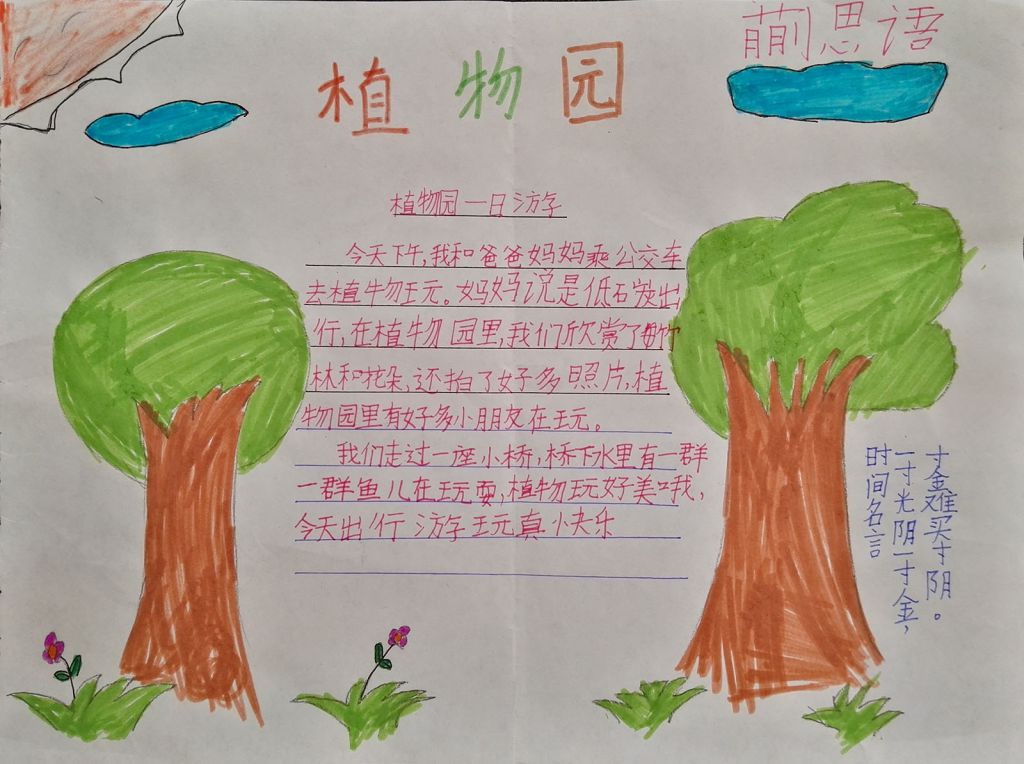 植物园
萠思语
植物园一日游学
今天下午,我和爸爸妈妈乘公交车
去植物玩。妈妈说是低石炭出
行,在植物园里,我们欣赏了
林和花朵,还拍了好多照片,植
物园里有好多小朋友在玩。
我们走过一座小桥,桥下水里有一群
一群鱼儿在玩耍,植物玩好美哦,
今天出行游学玩真快乐
时间名言
一寸光阴一寸金,
寸金难买寸阴。